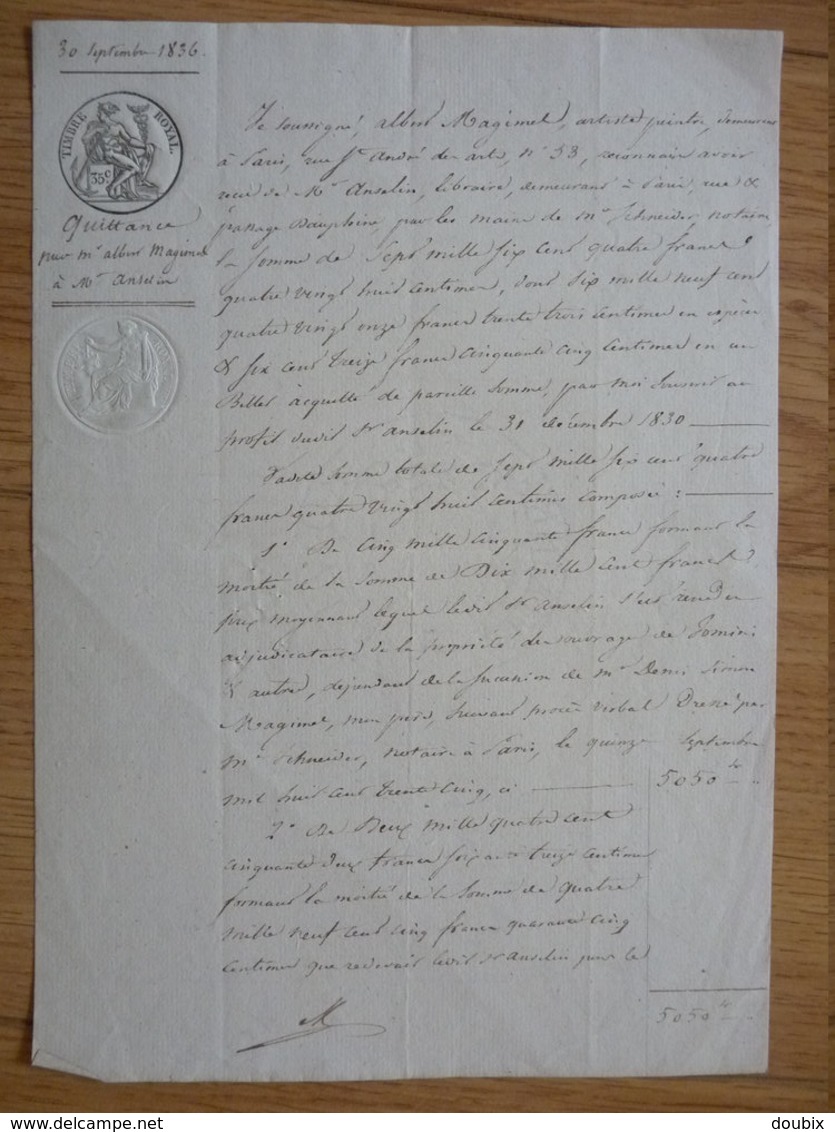 30 septembre 1836.
TIMBRE ROYAL.
35c
Quittance
par mr albert Magimel
à Mr Anselin
Je soussigné, albert Magimel, artiste peintre, demeurant
à Paris, rue St André des arts, n° 58, reconnais avoir
reçu de Mr Anselin, libraire, demeurant à Paris, rue &
passage Dauphine, par les mains de Me Schneider notaire,
la somme de Sept mille six cent quatre francs
quatre vingt huit centimes, dont Six mille neuf cent
quatre vingt onze francs trente trois centimes en espèces
& six cent treize francs cinquante cinq centimes en un
Billet acquitté de pareille somme, par moi souscrit au
profit dudit Sr anselin le 31 décembre 1830
Ladite Somme totale de Sept mille six cent quatre
francs quatre vingt huit centimes composée :
1° De Cinq mille cinquante francs formant la
moitié de la somme de Dix mille cent francs,
prix moyennant lequel ledit Sr anselin s'est rendu
adjudicataire de la propriété des ouvrages de Jomini
& autres, dépendant de la succession de mr Denis Simon
Magimel, mon père, suivant procès verbal Dressé par
Me Schneider, notaire à Paris, le quinze septembre
mil huit cent trente cinq, ci 5050 fr "
2° De Deux mille quatre cent
cinquante deux francs soixante treize centimes
formant la moitié de la somme de quatre
mille neuf cent cinq francs quarante cinq
centimes que redevait ledit Sr anselin pour le
5050 fr "
M
doubix